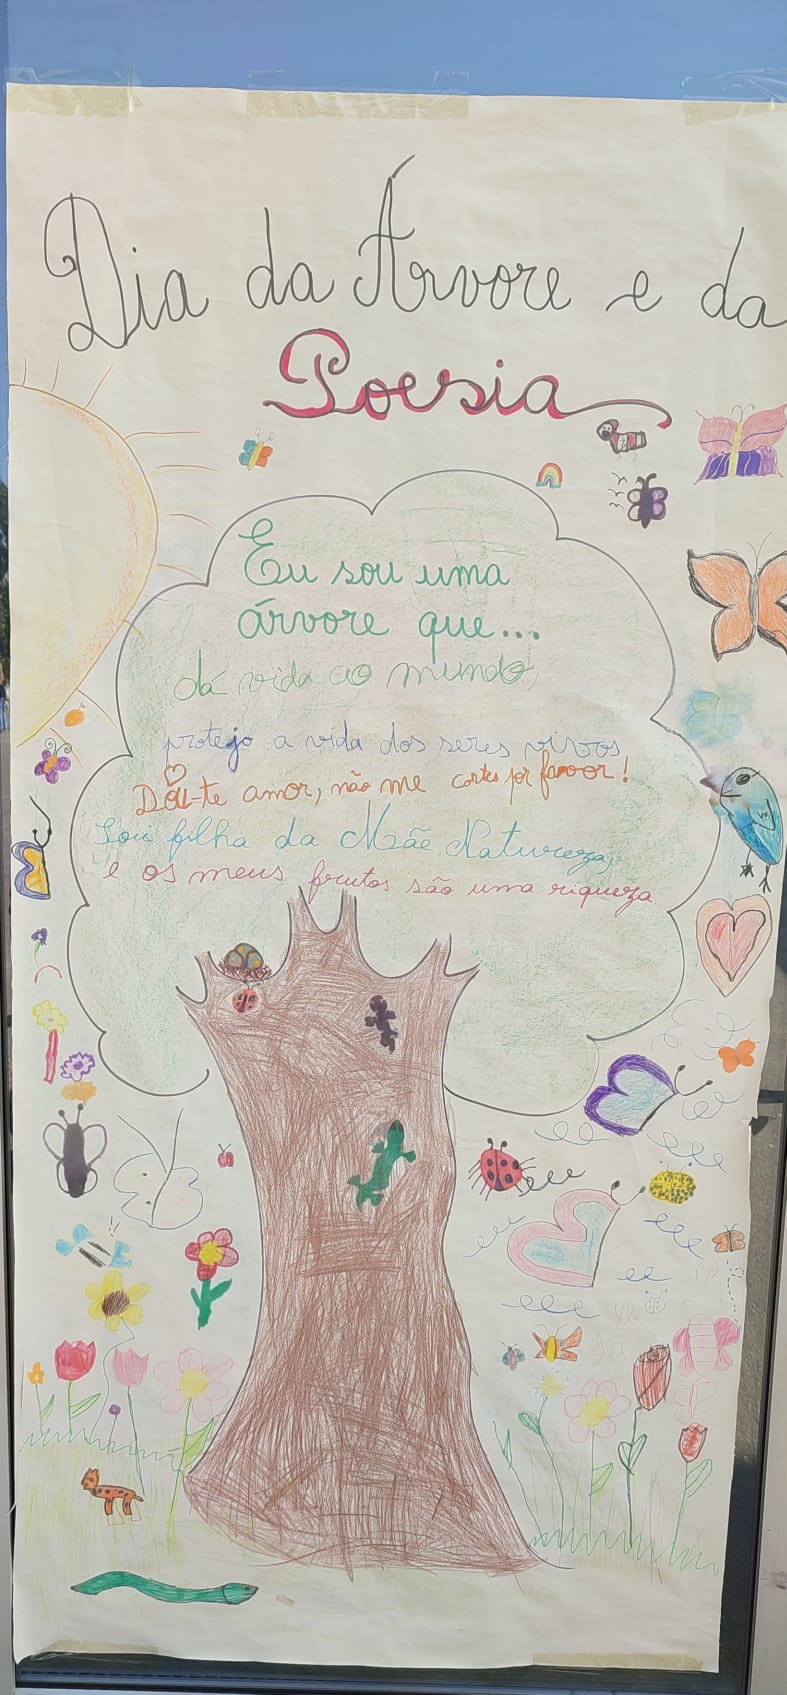 Dia da Árvore e da
Poesia
Eu sou uma
árvore que...
dá vida ao mundo,
protejo a vida dos seres vivos
Dou-te amor, não me cortes por favor!
Sou filha da Mãe Natureza,
e os meus frutos são uma riqueza